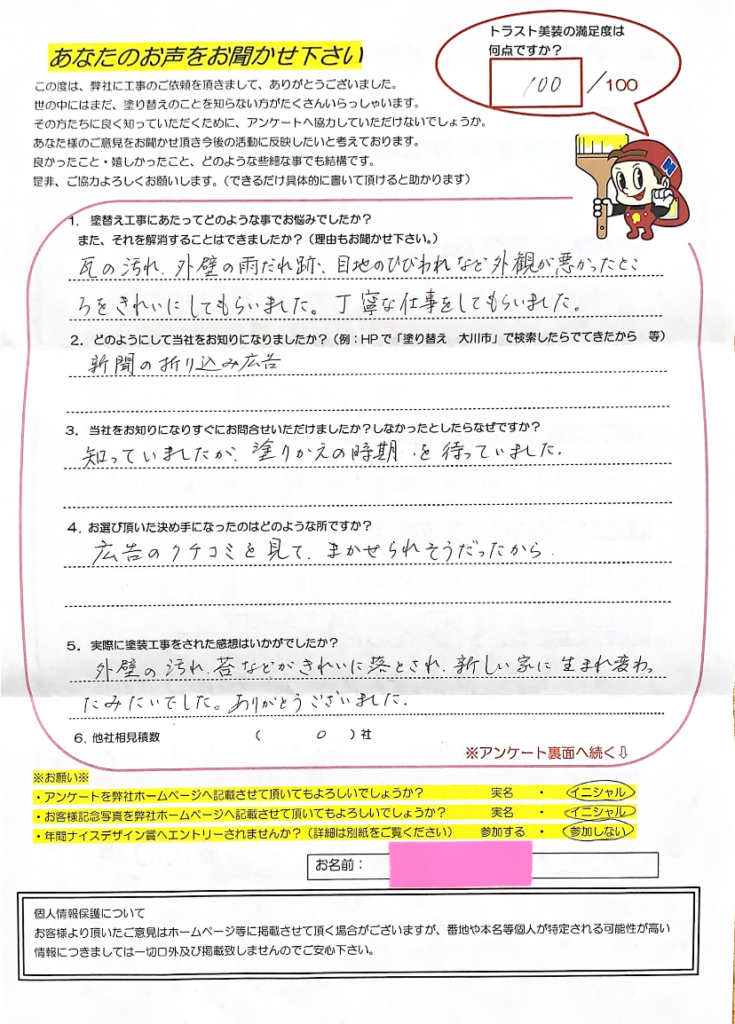 あなたのお声をお聞かせ下さい
トラスト美装の満足度は
何点ですか？
100 /100
この度は、弊社に工事のご依頼を頂きまして、ありがとうございました。
世の中にはまだ、塗り替えのことを知らない方がたくさんいらっしゃいます。
その方たちに良く知っていただくために、アンケートへ協力していただけないでしょうか。
あなた様のご意見をお聞かせ頂き今後の活動に反映したいと考えております。
良かったこと・嬉しかったこと、どのような些細な事でも結構です。
是非、ご協力よろしくお願いします。（できるだけ具体的に書いて頂けると助かります）
N
1．塗替え工事にあたってどのような事でお悩みでしたか？
また、それを解消することはできましたか？（理由もお聞かせ下さい。）
瓦の汚れ、外壁の雨だれ跡、目地のひびわれなど外観が悪かったとこ
ろをきれいにしてもらいました。丁寧な仕事をしてもらいました。
2．どのようにして当社をお知りになりましたか？（例：HPで「塗り替え　大川市」で検索したらでてきたから　等）
新聞の折り込み広告
3．当社をお知りになりすぐにお問合せいただけましたか？しなかったとしたらなぜですか？
知っていましたが、塗りかえの時期を待っていました。
4．お選び頂いた決め手になったのはどのような所ですか？
広告のクチコミを見て、まかせられそうだったから、
5．実際に塗装工事をされた感想はいかがでしたか？
外壁の汚れ、苔などがきれいに落とされ、新しい家に生まれ変わっ
たみたいでした。ありがとうございました。
6．他社相見積数　（　0　）社
※アンケート裏面へ続く⇩
※お願い※
・アンケートを弊社ホームページへ記載させて頂いてもよろしいでしょうか？　実名　・　イニシャル
・お客様記念写真を弊社ホームページへ記載させて頂いてもよろしいでしょうか？　実名　・　イニシャル
・年間ナイスデザイン賞へエントリーされませんか？（詳細は別紙をご覧ください）　参加する　・　参加しない
お名前：
個人情報保護について
お客様より頂いたご意見はホームページ等に掲載させて頂く場合がございますが、番地や本名等個人が特定される可能性が高い
情報につきましては一切口外及び掲載致しませんのでご安心下さい。